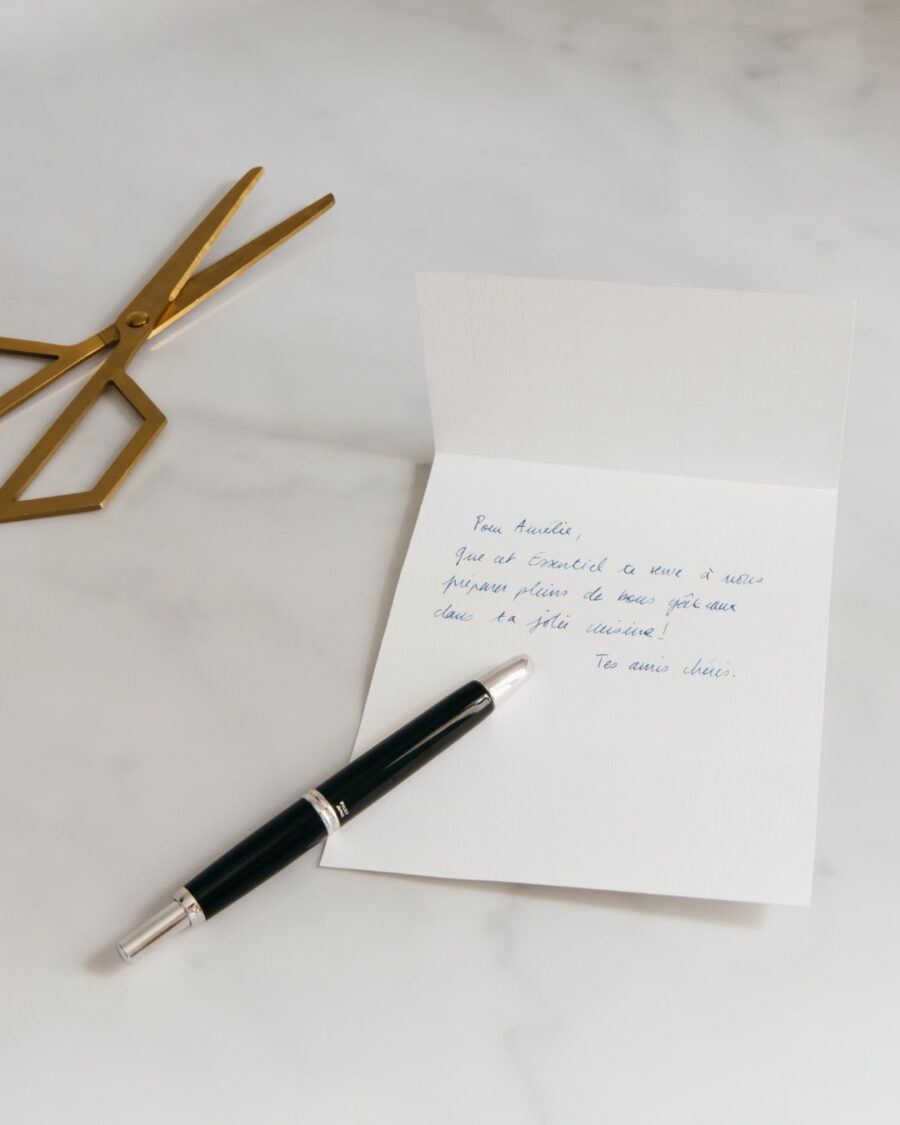 Pour Amélie,
Que cet Essentiel te serve à nous
préparer pleins de bons gâteaux
dans ta jolie cuisine!
Tes amis chéris.